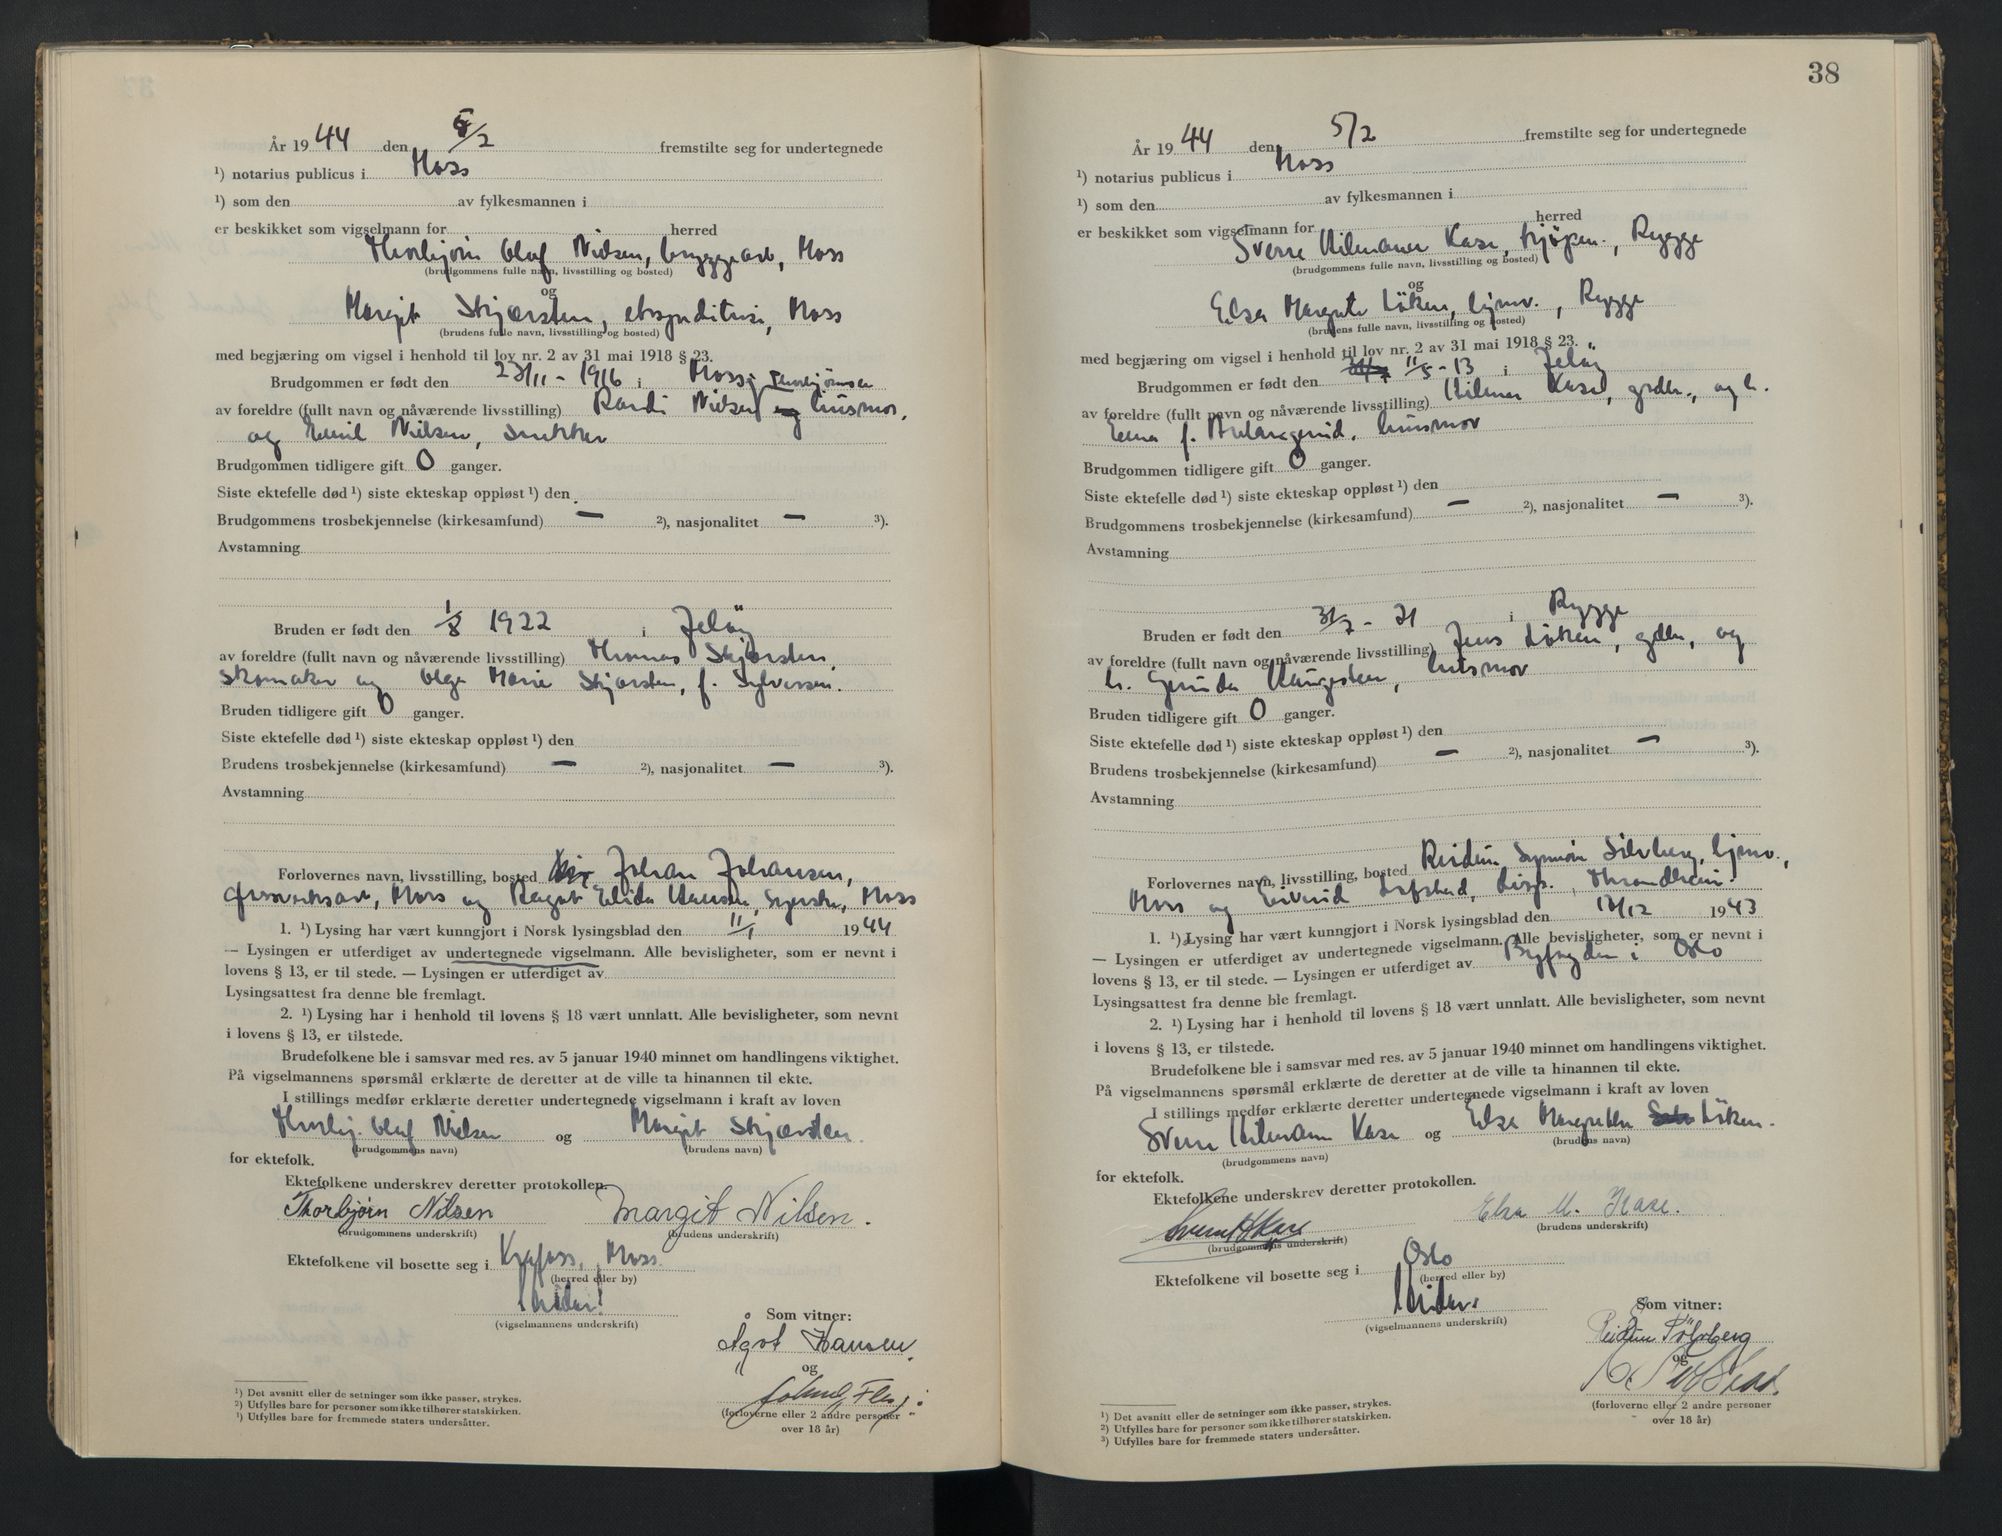 År 1944 den 5/2 fremstilte seg for undertegnede
¹) notarius publicus i Moss
¹) som den av fylkesmannen i
er beskikket som vigselmann for herred
Thorbjørn Olaf Nielsen, bryggearb, Moss
(brudgommens fulle navn, livsstilling og bosted)
og
Margit Skjørsten, ekspeditrise, Moss
(brudens fulle navn, livsstilling og bosted)
med begjæring om vigsel i henhold til lov nr. 2 av 31 mai 1918 § 23.
Brudgommen er født den 23/11 - 1916 i Moss Thorbjørnsen
av foreldre (fullt navn og nåværende livsstilling) Randi Nielsen husmor,
og Emil Nielsen, snekker
Brudgommen tidligere gift 0 ganger.
Siste ektefelle død ¹) siste ekteskap oppløst ¹) den
Brudgommens trosbekjennelse (kirkesamfund) — ²), nasjonalitet — ³).
Avstamning
Bruden er født den 1/8 1922 i Jeløy
av foreldre (fullt navn og nåværende livsstilling) Thomas Skjørsten,
skomaker og Olga Marie Skjørsten, f. Sylvessen.
Bruden tidligere gift 0 ganger.
Siste ektefelle død ¹) siste ekteskap oppløst ¹) den
Brudens trosbekjennelse (kirkesamfund) — ²), nasjonalitet — ³).
Avstamning
Forlovernes navn, livsstilling, bosted Johan Johansen,
Moss og Ragot Elida Hansen, Moss
1. ¹) Lysing har vært kunngjort i Norsk lysingsblad den 11/1 1944
— Lysingen er utferdiget av undertegnede vigselmann. Alle bevisligheter, som er nevnt i
lovens § 13, er til stede. — Lysingen er utferdiget av
Lysingsattest fra denne ble fremlagt.
2. ¹) Lysing har i henhold til lovens § 18 vært unnlatt. Alle bevisligheter, som nevnt
i lovens § 13, er tilstede.
Brudefolkene ble i samsvar med res. av 5 januar 1940 minnet om handlingens viktighet.
På vigselmannens spørsmål erklærte de deretter at de ville ta hinannen til ekte.
I stillings medfør erklærte deretter undertegnede vigselmann i kraft av loven
Thorbj. Olaf Nielsen og Margit Skjørsten.
(brudgommens navn) (brudens navn)
for ektefolk.
Ektefolkene underskrev deretter protokollen.
Thorbjørn Nilsen Margit Nilsen.
(brudgommens underskrift) (brudens underskrift)
Ektefolkene vil bosette seg i Krapfoss, Moss.
(herred eller by)
(vigselmannens underskrift)
Som vitner:
Ågot Hansen.
og
(forloverne eller 2 andre personer
over 18 år)
¹) Det avsnitt eller de setninger som ikke passer, strykes.
²) Utfylles bare for personer som ikke tilhører statskirken.
³) Utfylles bare for fremmede staters undersåtter.
38
År 1944 den 5/2 fremstilte seg for undertegnede
¹) notarius publicus i Moss
¹) som den av fylkesmannen i
er beskikket som vigselmann for herred
Sverre Hilmann Kase, Rygge
(brudgommens fulle navn, livsstilling og bosted)
og
Elsa Margrete Løken, hjmv., Rygge
(brudens fulle navn, livsstilling og bosted)
med begjæring om vigsel i henhold til lov nr. 2 av 31 mai 1918 § 23.
Brudgommen er født den 11/5 - 13 i Jeløy
av foreldre (fullt navn og nåværende livsstilling) Hilmar Kase, grdbr., og h.
f. husmor
Brudgommen tidligere gift 0 ganger.
Siste ektefelle død ¹) siste ekteskap oppløst ¹) den
Brudgommens trosbekjennelse (kirkesamfund) — ²), nasjonalitet — ³).
Avstamning
Bruden er født den 31/7 - 21 i Rygge
av foreldre (fullt navn og nåværende livsstilling) Jens Løken, gdbr, og
h. Gerida Haugesten, husmor
Bruden tidligere gift 0 ganger.
Siste ektefelle død ¹) siste ekteskap oppløst ¹) den
Brudens trosbekjennelse (kirkesamfund) — ²), nasjonalitet — ³).
Avstamning
Forlovernes navn, livsstilling, bosted Reidun Synnøve Sølvberg, hjmv.,
Moss og Eivind Lofstad, disp., Throndheim
1. ¹) Lysing har vært kunngjort i Norsk lysingsblad den 1943
— Lysingen er utferdiget av undertegnede vigselmann. Alle bevisligheter, som er nevnt i
lovens § 13, er til stede. — Lysingen er utferdiget av Byfogden i Oslo
Lysingsattest fra denne ble fremlagt.
2. ¹) Lysing har i henhold til lovens § 18 vært unnlatt. Alle bevisligheter, som nevnt
i lovens § 13, er tilstede.
Brudefolkene ble i samsvar med res. av 5 januar 1940 minnet om handlingens viktighet.
På vigselmannens spørsmål erklærte de deretter at de ville ta hinannen til ekte.
I stillings medfør erklærte deretter undertegnede vigselmann i kraft av loven
Sverre Hilmann Kase og Elsa Margrethe Løken.
(brudgommens navn) (brudens navn)
for ektefolk.
Ektefolkene underskrev deretter protokollen.
Sverre H Kase Elsa M. Kase.
(brudgommens underskrift) (brudens underskrift)
Ektefolkene vil bosette seg i Oslo
(herred eller by)
(vigselmannens underskrift)
Som vitner:
Reidun Sölvberg
og
(forloverne eller 2 andre personer
over 18 år)
¹) Det avsnitt eller de setninger som ikke passer, strykes.
²) Utfylles bare for personer som ikke tilhører statskirken.
³) Utfylles bare for fremmede staters undersåtter.